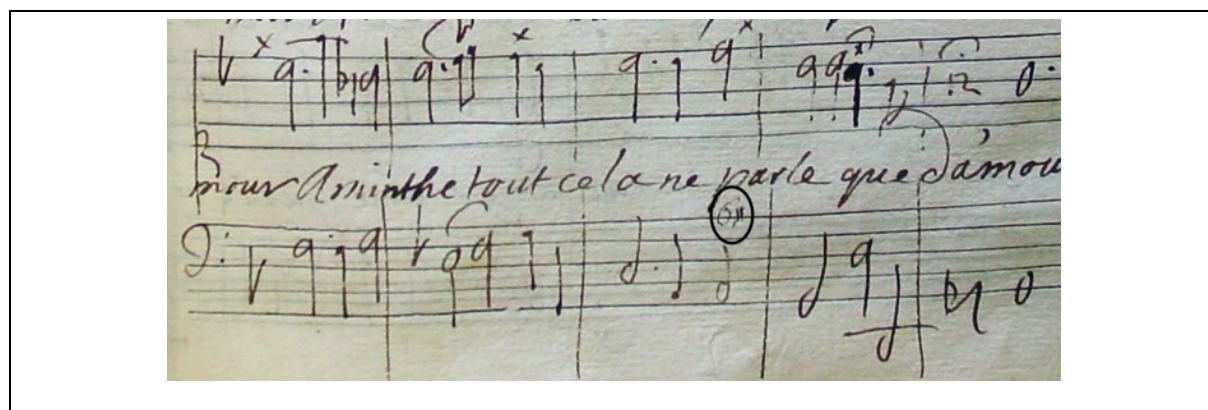 mour Aminthe tout cela ne parle que d'amou